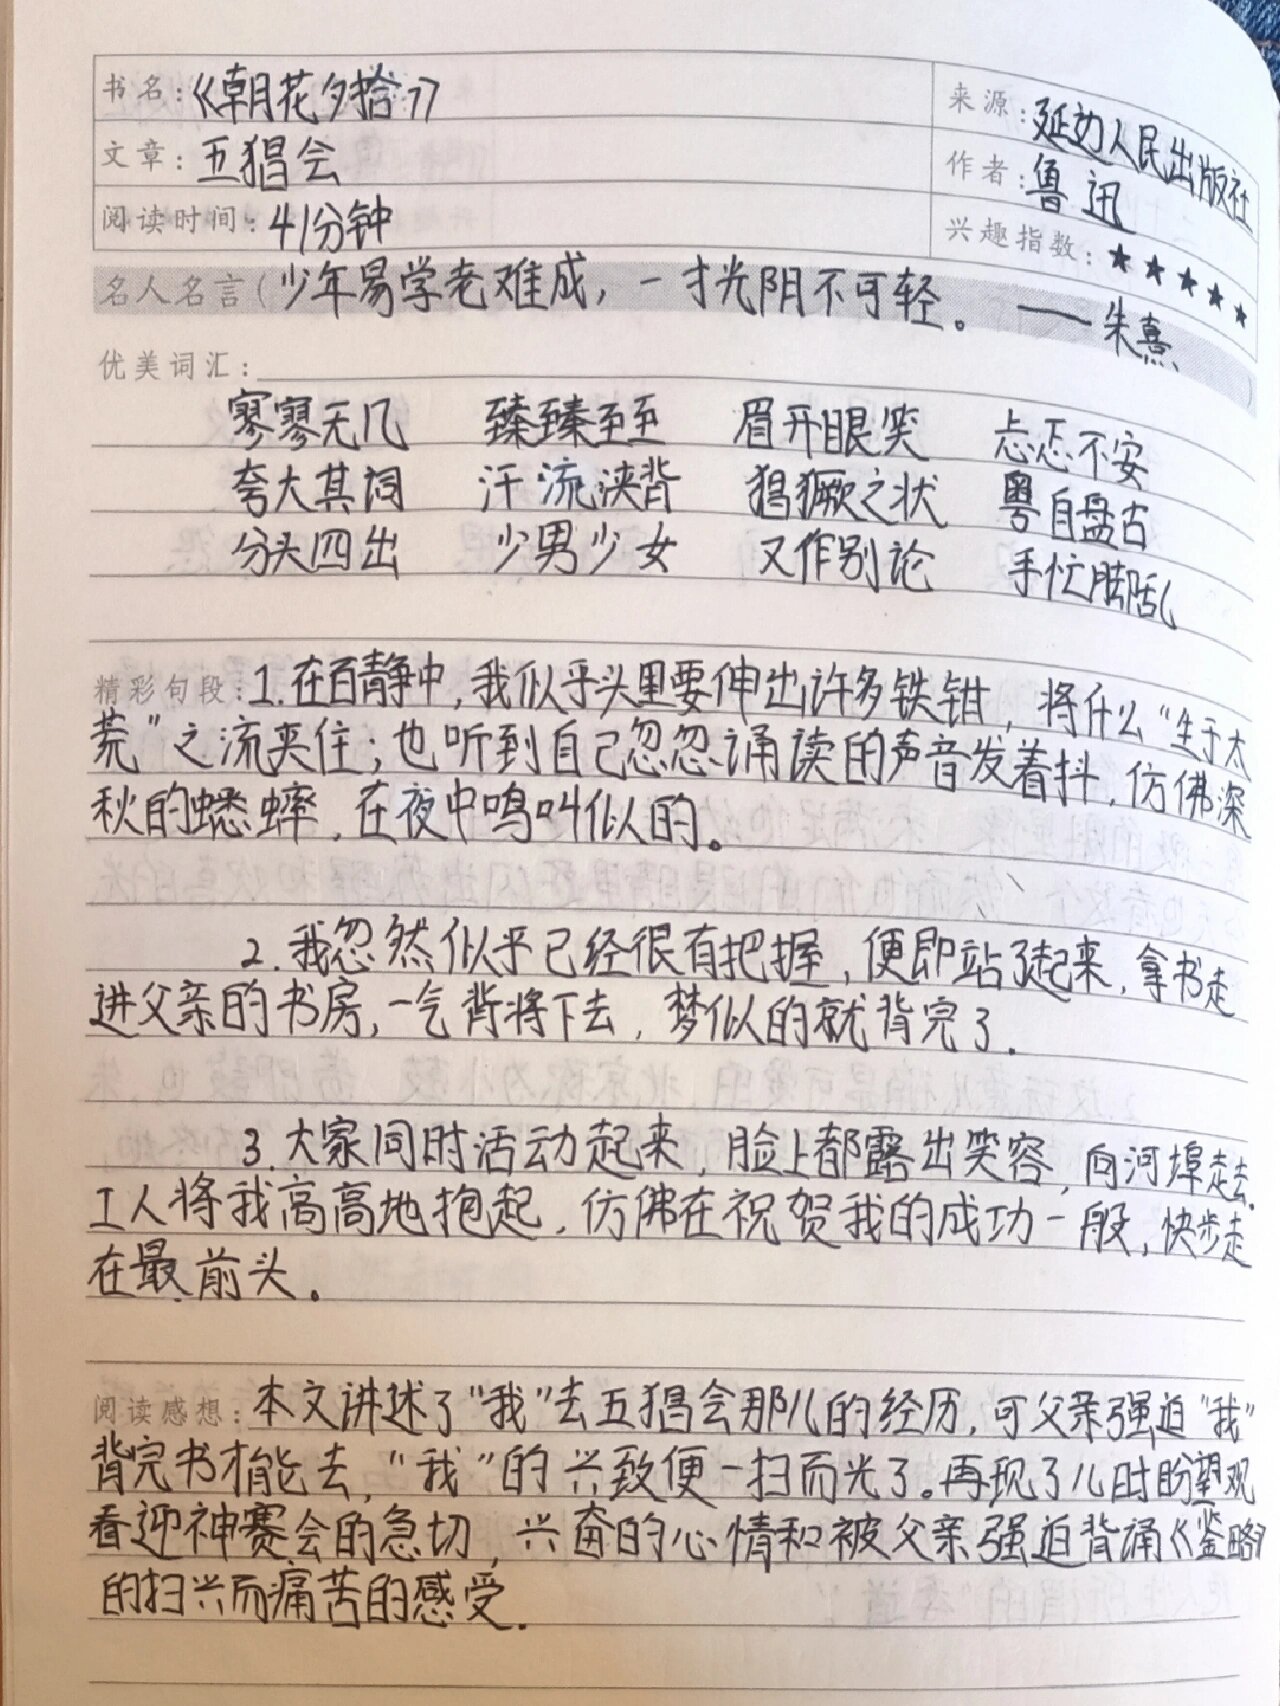 书名:《朝花夕拾》
来源:延边人民出版社
文章:五猖会
作者:鲁迅
阅读时间:41分钟
兴趣指数:★★★★★
名人名言(少年易学老难成,一才光阴不可轻。——朱熹)
优美词汇:
寥寥无几 臻臻至至 眉开眼笑 忐忑不安
夸大其词 汗流浃背 猖獗之状 粤自盘古
分头四出 少男少女 又作别论 手忙脚乱
精彩句段:1.在百静中,我似乎头里要伸出许多铁钳,将什么“生于太
荒”之流夹住;也听到自己忽忽诵读的声音发着抖,仿佛深
秋的蟋蟀,在夜中鸣叫似的。
2.我忽然似乎已经很有把握,便即站了起来,拿书走
进父亲的书房,一气背将下去,梦似的就背完了.
3.大家同时活动起来,脸上都露出笑容,向河埠走去.
工人将我高高地抱起,仿佛在祝贺我的成功一般,快步走
在最前头.
阅读感想:本文讲述了“我”去五猖会那儿的经历,可父亲强迫“我”
背完书才能去,“我”的兴致便一扫而光了.再现了儿时盼望观
看迎神赛会的急切,兴奋的心情和被父亲强迫背诵《鉴略》
的扫兴而痛苦的感受.